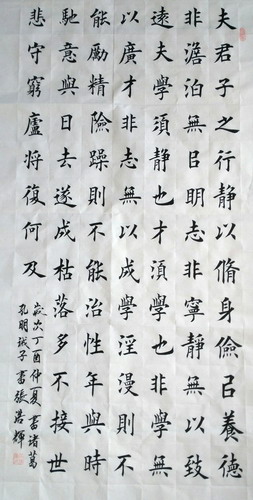 夫君子之行靜以脩身儉㠯養德
非澹泊無㠯明志非寧靜無以致
遠夫學須靜也才湏學也非學無
以廣才非志無以成學淫漫則不
能勵精險躁則不能治性年與時
馳意與日去遂成枯落多不接世
悲守窮廬將復何及
歲次丁酉仲夏書諸葛
孔明誡子書張輝